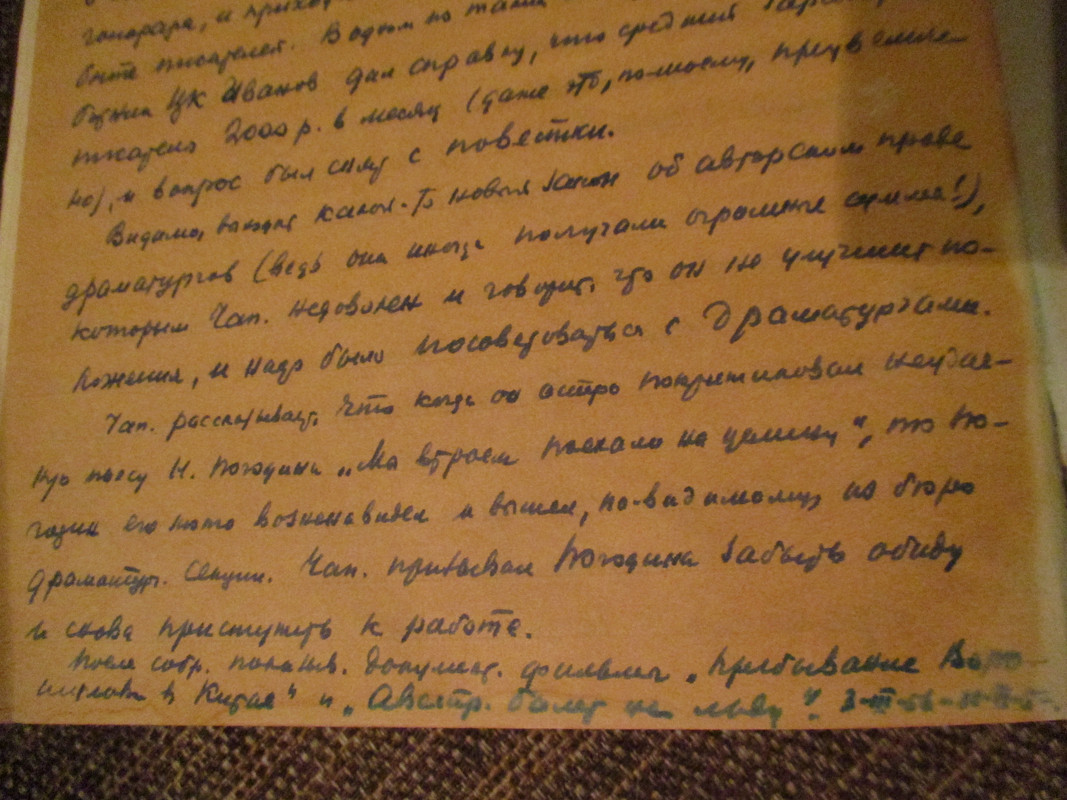 гонорара, и приход
быте писателей. В одном из таких
ЦК Иванов дал справку, что средний
писателя 2000 р. в месяц (даже это, по-моему, преувеличе-
но), и вопрос был снят с повестки.
Видимо, выходит какой-то новый закон об авторском праве
драматургов (ведь они иногда получали огромные суммы!),
которым Чап. недоволен и говорит, что он не улучшит по-
ложения, и надо было посоветоваться с драматургами.
Чап. рассказывает, что когда он остро покритиковал неудач-
ную пьесу Н. Погодина „Мы втроем поехали на целину", то По-
годин его люто возненавидел и вышел, по-видимому, из бюро
драматург. секции. Чап. призывал Погодина забыть обиду
и снова приступить к работе.
После собр. показыв. документ. фильмы „Пребывание Воро-
шилова в Китае" и „Австр. балет на льду".